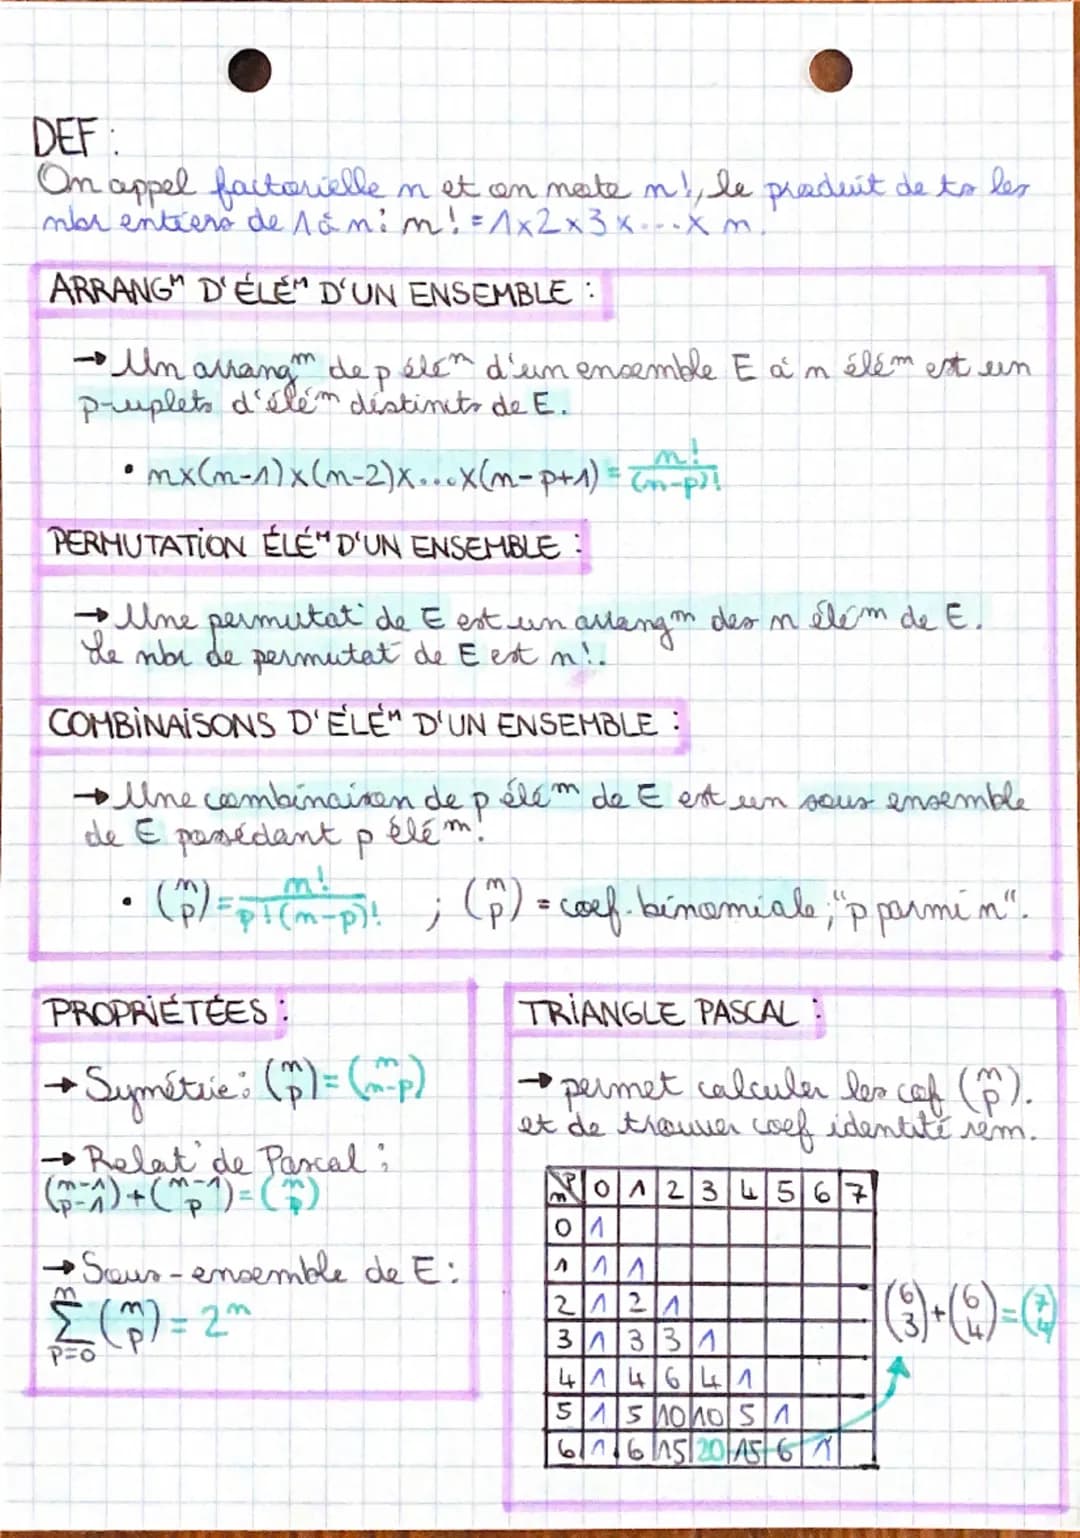 DEF :
On appel factorielle n et on note n!, le produit de ts les
nbr entiers de 1 à n : n! = 1x2x3x...x n.
ARRANGᵐ D'ÉLÉᵐ D'UN ENSEMBLE :
→ Un arrangᵐ de p éléᵐ d'un ensemble E à n éléᵐ est un
p-uplets d'éléᵐ distincts de E.
• nx(n-1)x(n-2)x...x(n-p+1) = n!/(n-p)!
PERMUTATION ÉLÉᵐ D'UN ENSEMBLE :
→ Une permutat° de E est un arrangᵐ des n éléᵐ de E.
Le nbr de permutat° de E est n!.
COMBINAISONS D'ÉLÉᵐ D'UN ENSEMBLE :
→ Une combinaison de p éléᵐ de E est un sous ensemble
de E possédant p éléᵐ.
• (n p) = n!/p!(n-p)! ; (n p) = coef. binomiale ; "p parmi n".
PROPRIÉTÉES :
→ Symétrie : (n p) = (n n-p)
→ Relat° de Pascal :
(n-1 p-1) + (n-1 p) = (n p)
→ Sous-ensemble de E :
n
∑ (n p) = 2ⁿ
p=0
TRIANGLE PASCAL :
→ permet calculer les coef (n p).
et de trouver coef identité rem.
n\p 0 1 2 3 4 5 6 7
0 1
1 1 1
2 1 2 1
3 1 3 3 1
4 1 4 6 4 1
5 1 5 10 10 5 1
6 1 6 15 20 15 6 1
(6 3) + (6 4) = (7 4)